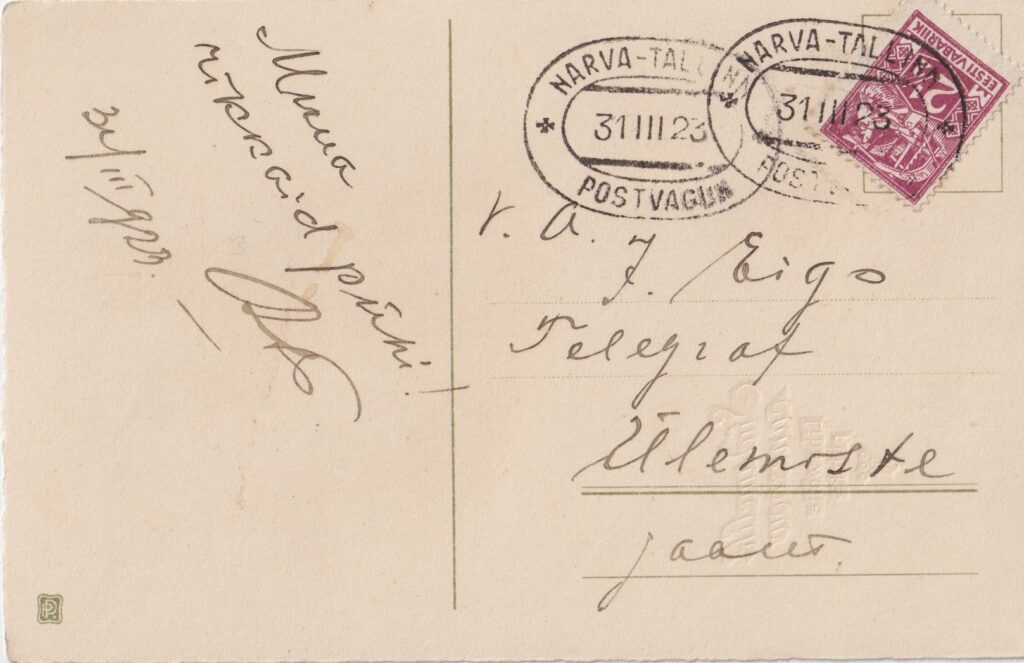 Muna
rikkaid pühi!
31/III 1923.
NARVA-TALLINN
31 III 23
POSTVAGUN
NARVA-TALLINN
31 III 23
POSTVAGUN
EESTI VABARIIK
2 M
V. A. J. Eigo
Telegraf
Ülemiste
jaam.